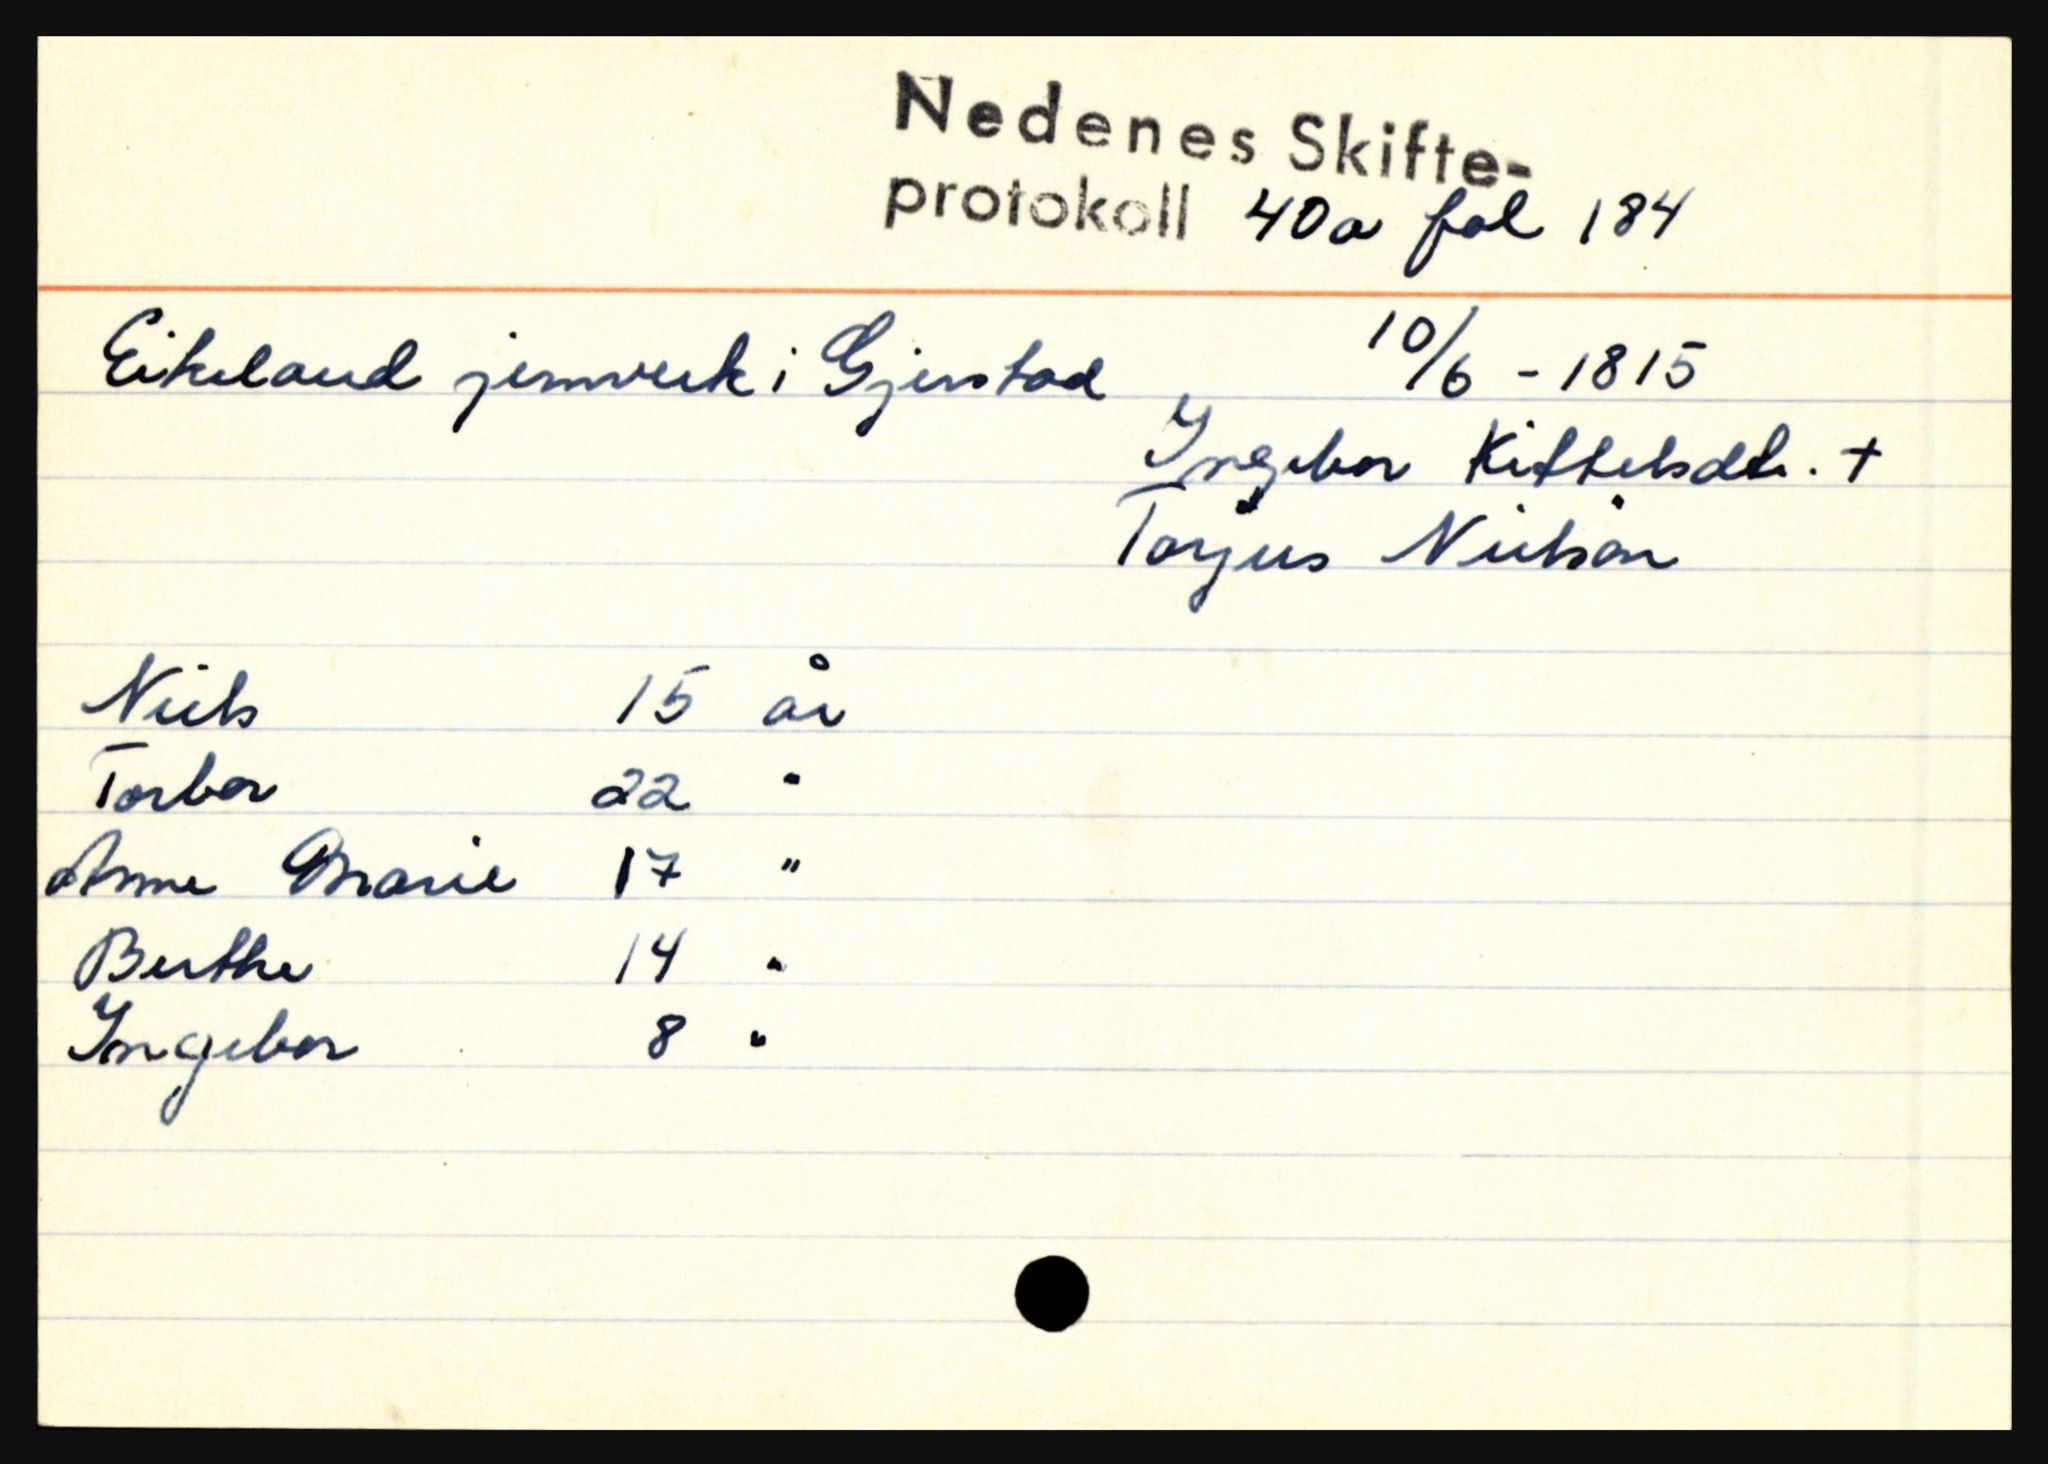 Nedenes Skifte-
protokoll 40a fol 184
Eikeland jernverk i Gjerstad 10/6 - 1815
Ingebor Kittelsdtr. +
Torjus Nielsen
Niels 15 år
Torbor 22 "
Anne Marie 17 "
Berthe 14 "
Ingebor 8 "